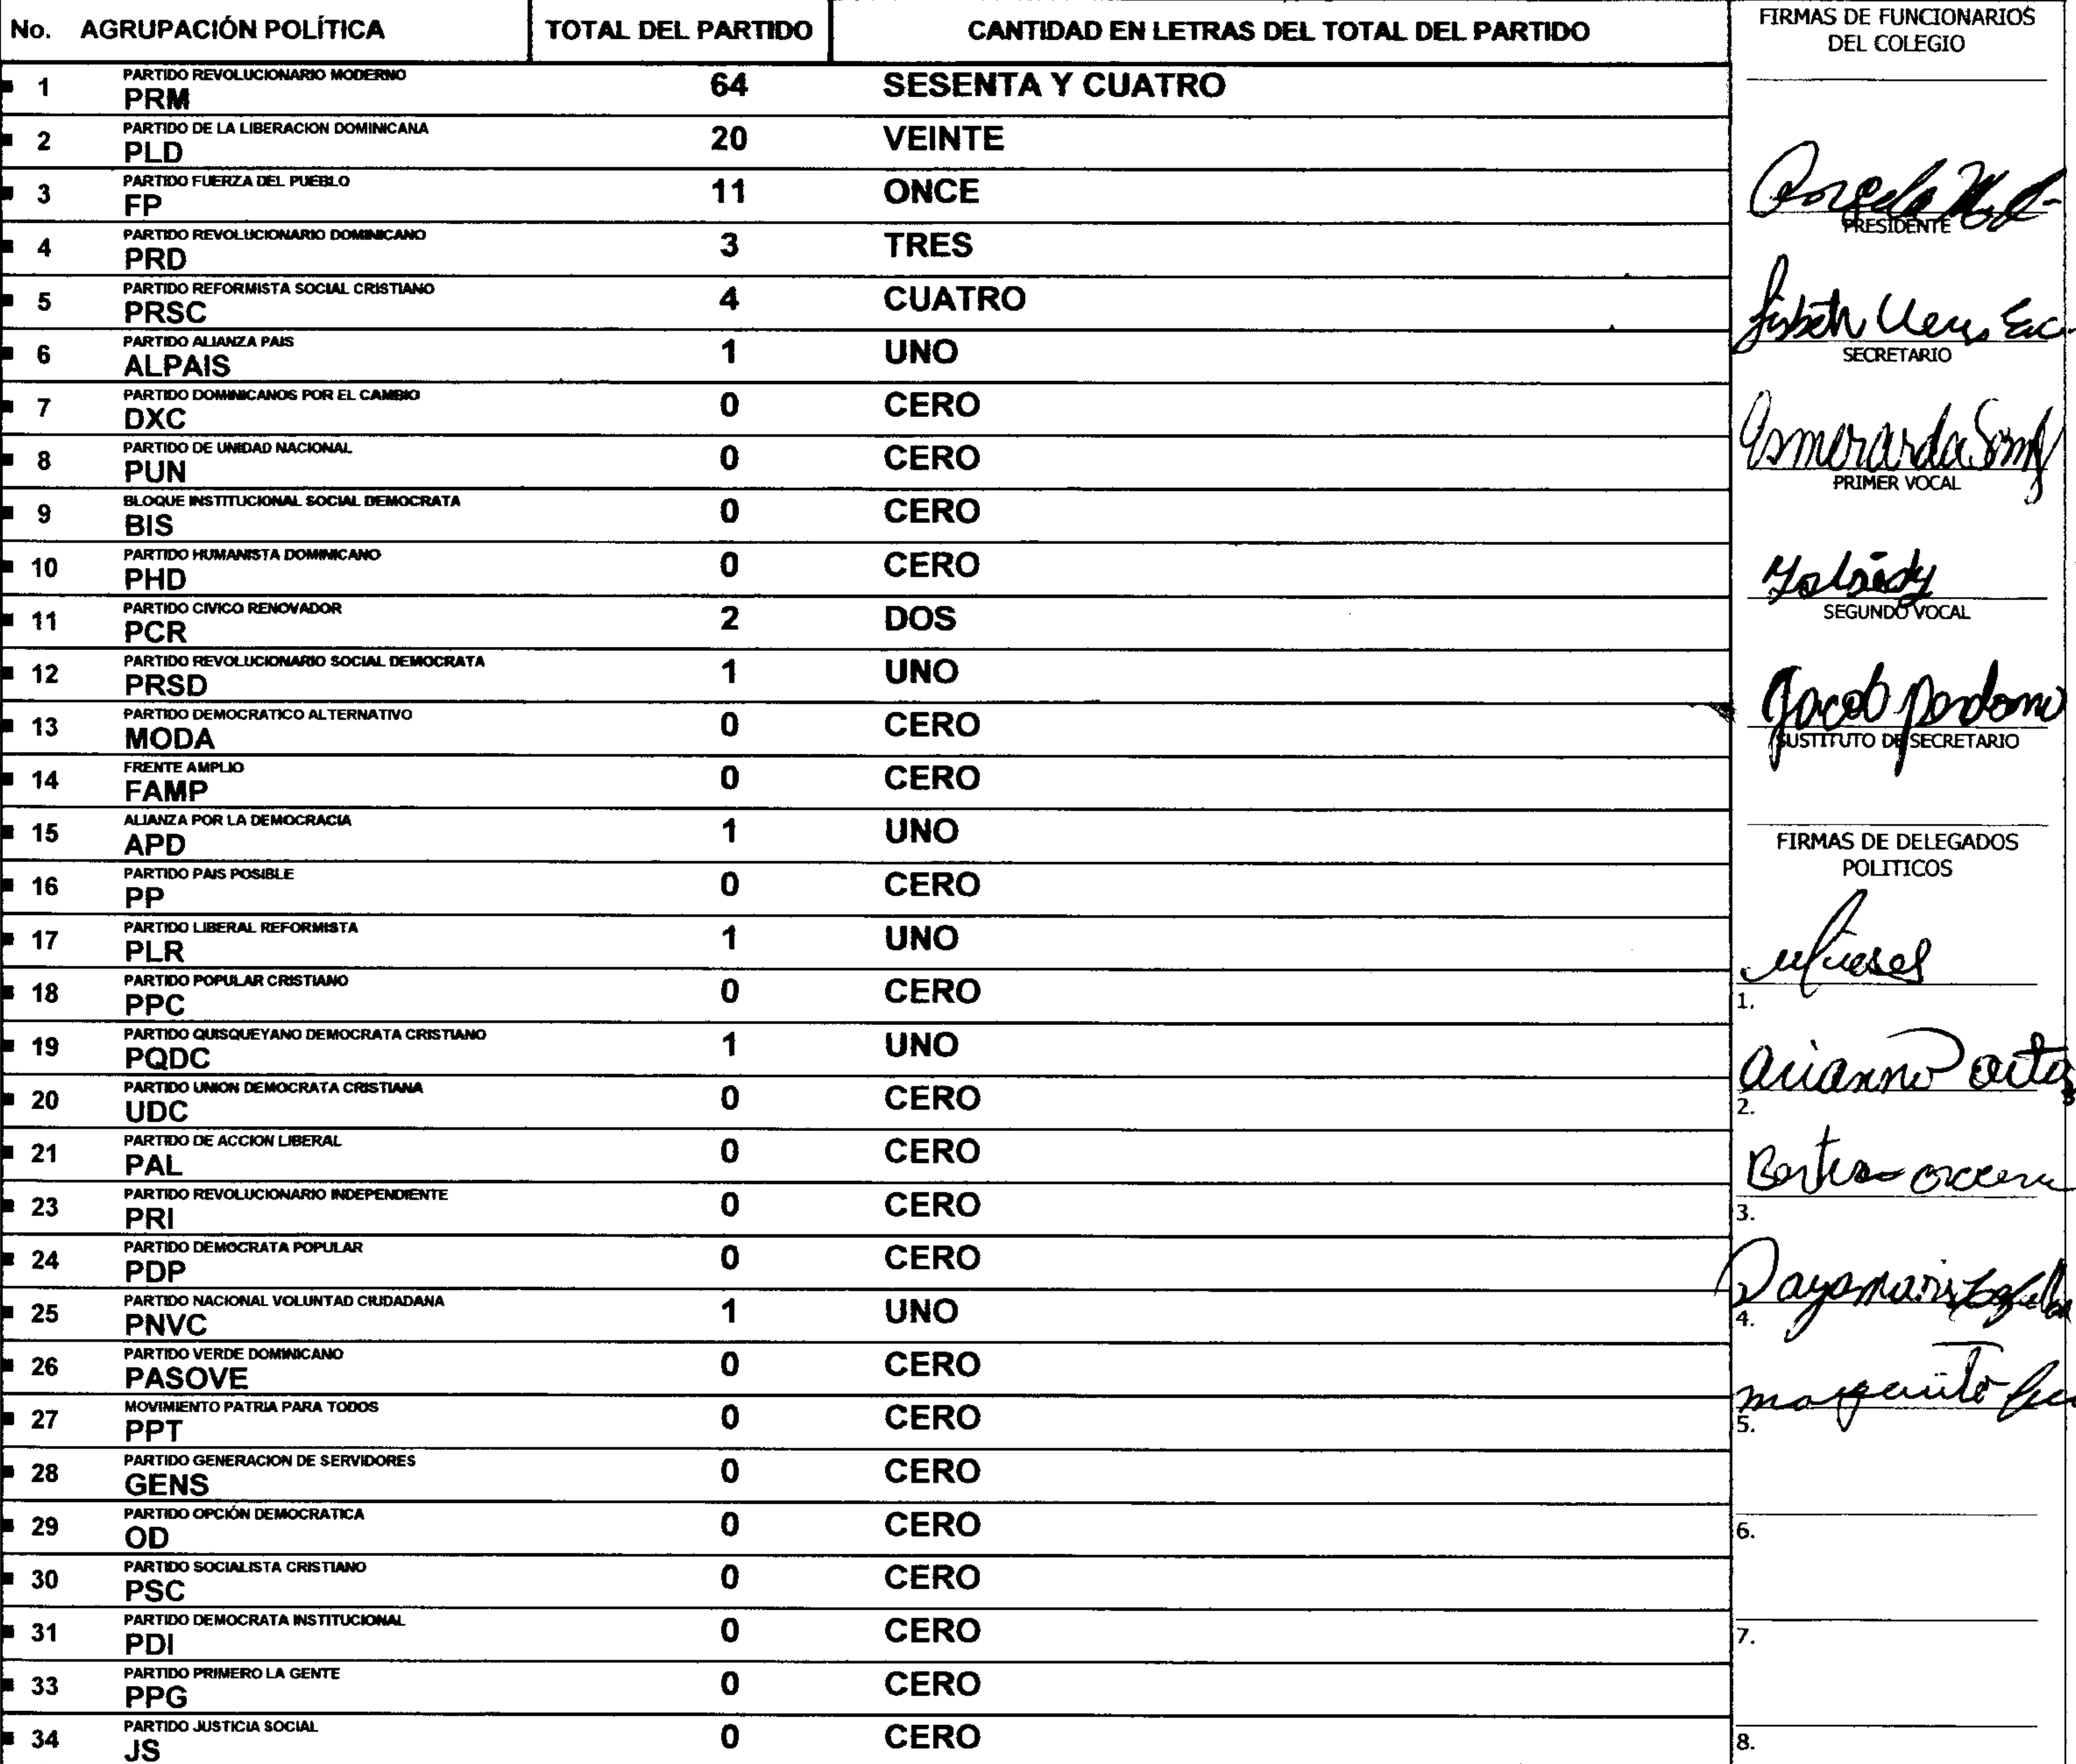 No. AGRUPACIÓN POLÍTICA TOTAL DEL PARTIDO CANTIDAD EN LETRAS DEL TOTAL DEL PARTIDO
PARTIDO REVOLUCIONARIO MODERNO
1 PRM 64 SESENTA Y CUATRO
PARTIDO DE LA LIBERACION DOMINICANA
2 PLD 20 VEINTE
PARTIDO FUERZA DEL PUEBLO
3 FP 11 ONCE
PARTIDO REVOLUCIONARIO DOMINICANO
4 PRD 3 TRES
PARTIDO REFORMISTA SOCIAL CRISTIANO
5 PRSC 4 CUATRO
PARTIDO ALIANZA PAIS
6 ALPAIS 1 UNO
PARTIDO DOMINICANOS POR EL CAMBIO
7 DXC 0 CERO
PARTIDO DE UNIDAD NACIONAL
8 PUN 0 CERO
BLOQUE INSTITUCIONAL SOCIAL DEMOCRATA
9 BIS 0 CERO
PARTIDO HUMANISTA DOMINICANO
10 PHD 0 CERO
PARTIDO CIVICO RENOVADOR
11 PCR 2 DOS
PARTIDO REVOLUCIONARIO SOCIAL DEMOCRATA
12 PRSD 1 UNO
PARTIDO DEMOCRATICO ALTERNATIVO
13 MODA 0 CERO
FRENTE AMPLIO
14 FAMP 0 CERO
ALIANZA POR LA DEMOCRACIA
15 APD 1 UNO
PARTIDO PAIS POSIBLE
16 PP 0 CERO
PARTIDO LIBERAL REFORMISTA
17 PLR 1 UNO
PARTIDO POPULAR CRISTIANO
18 PPC 0 CERO
PARTIDO QUISQUEYANO DEMOCRATA CRISTIANO
19 PQDC 1 UNO
PARTIDO UNION DEMOCRATA CRISTIANA
20 UDC 0 CERO
PARTIDO DE ACCION LIBERAL
21 PAL 0 CERO
PARTIDO REVOLUCIONARIO INDEPENDIENTE
23 PRI 0 CERO
PARTIDO DEMOCRATA POPULAR
24 PDP 0 CERO
PARTIDO NACIONAL VOLUNTAD CIUDADANA
25 PNVC 1 UNO
PARTIDO VERDE DOMINICANO
26 PASOVE 0 CERO
MOVIMIENTO PATRIA PARA TODOS
27 PPT 0 CERO
PARTIDO GENERACION DE SERVIDORES
28 GENS 0 CERO
PARTIDO OPCIÓN DEMOCRATICA
29 OD 0 CERO
PARTIDO SOCIALISTA CRISTIANO
30 PSC 0 CERO
PARTIDO DEMOCRATA INSTITUCIONAL
31 PDI 0 CERO
PARTIDO PRIMERO LA GENTE
33 PPG 0 CERO
PARTIDO JUSTICIA SOCIAL
34 JS 0 CERO
FIRMAS DE FUNCIONARIOS
DEL COLEGIO
PRESIDENTE
SECRETARIO
PRIMER VOCAL
SEGUNDO VOCAL
Jacob perdomo
SUSTITUTO DE SECRETARIO
FIRMAS DE DELEGADOS
POLITICOS
1.
2.
3.
4.
5.
6.
7.
8.